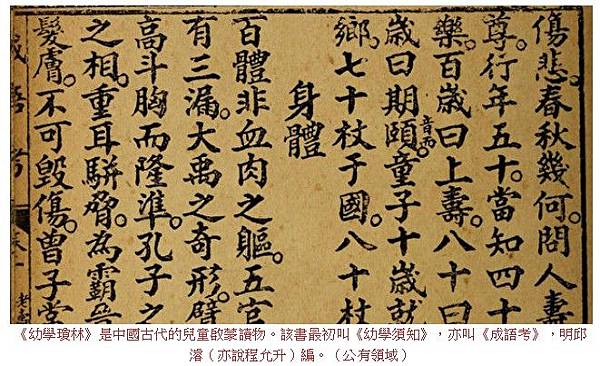 傷悲。春秋幾何。問人壽
尊。行年五十。當知四十
樂。百歲曰上壽。八十曰
歲曰期頤。音而童子十歲就
鄉。七十杖于國。八十杖
身體
百體非血肉之軀。五官
有三漏。大禹之奇形。臂
高斗胸而隆準。孔子之
之相。重耳駢脅。為霸
髮膚。不可毀傷。曾子常
成語考 卷一 老
《幼學瓊林》是中國古代的兒童啟蒙讀物。該書最初叫《幼學須知》，亦叫《成語考》，明邱
濬（亦說程允升）編。（公有領域）